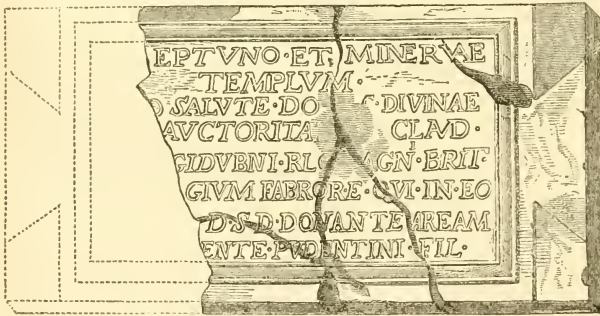 EPTVNO·ET·MINERVAE
TEMPLVM·
SALVTE·DO DIVINAE
AVCTORITA CLAVD·
GIDVBNI·R GN·BRIT·
GIVM FABRORE·QVI·IN·EO
D·S·D·DONANTE AREAM
ENTE·PVDENTINI·FIL·